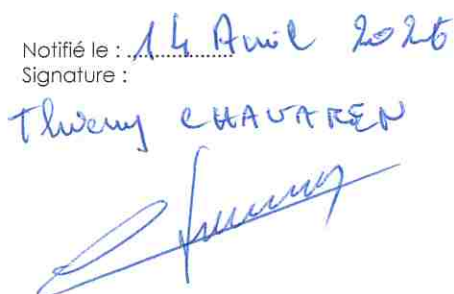 Notifié le : 14 Avril 2026
Signature :
Thierry CHAVAREN